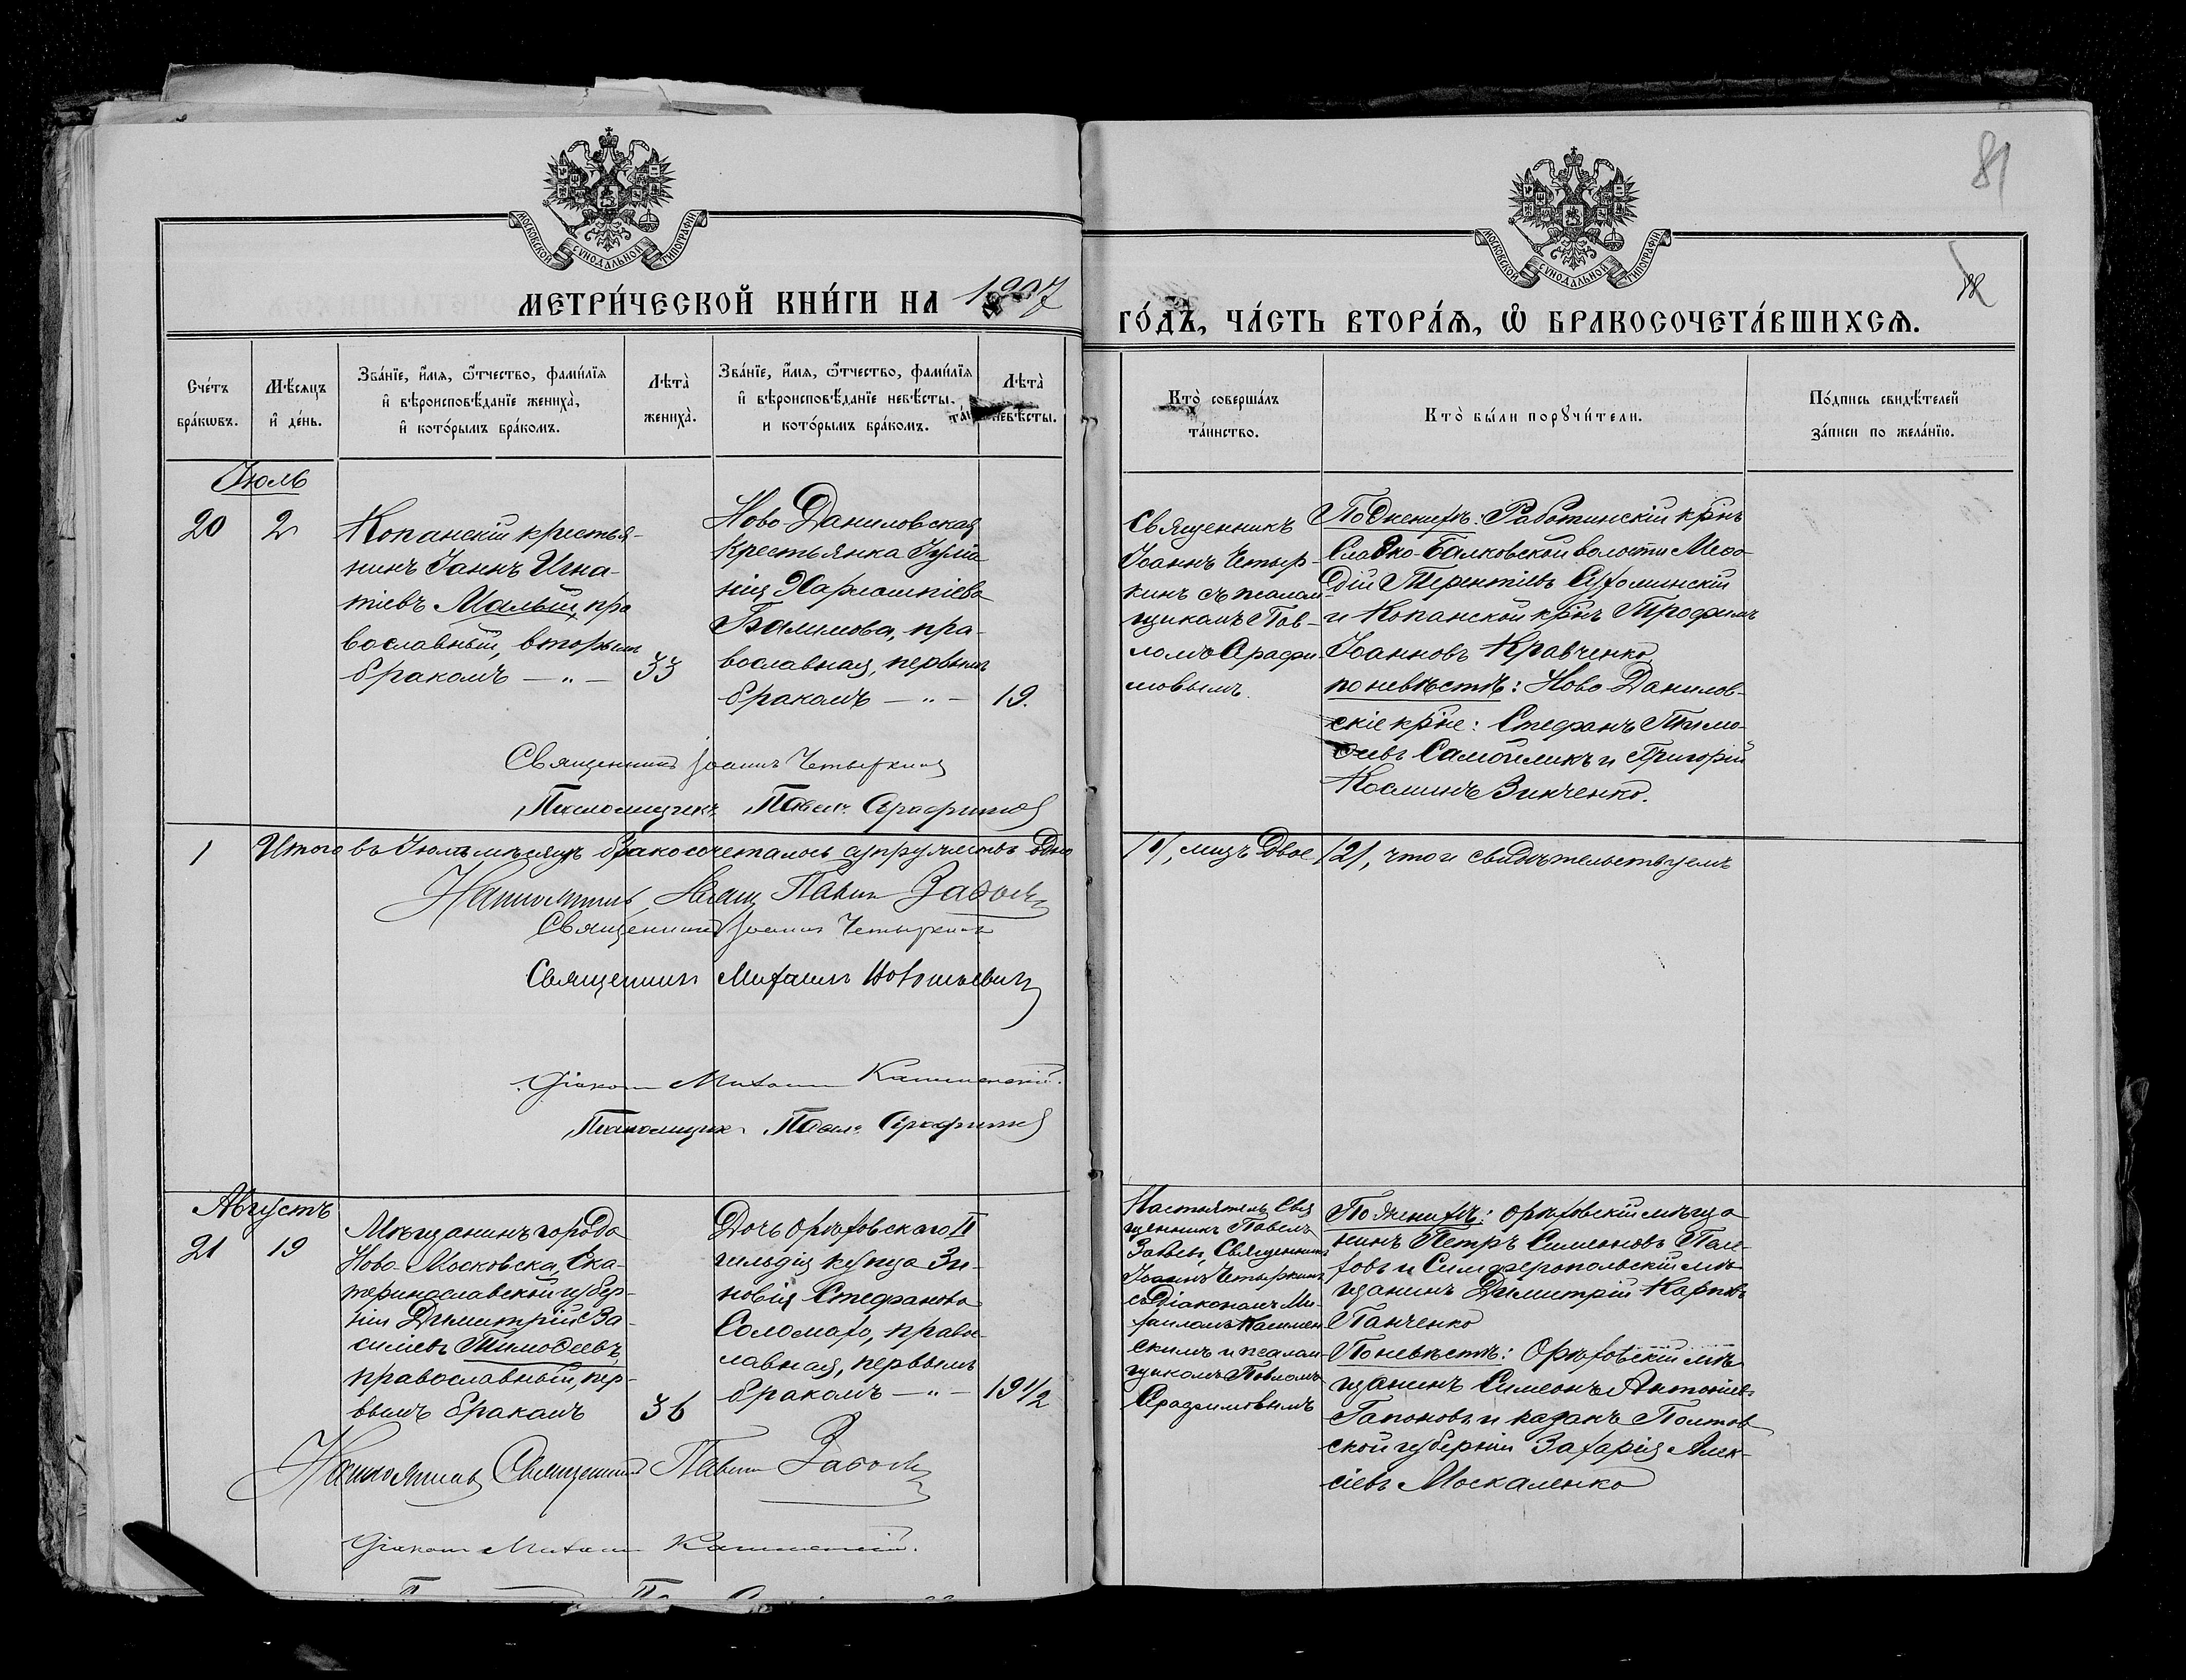 81
МОСКОВСКОЙ СѴНОДАЛЬНОЙ ТИПОГРАФІИ
МОСКОВСКОЙ СѴНОДАЛЬНОЙ ТИПОГРАФІИ
МЕТРИ́ЧЕСКОЙ КНИ́ГИ НА 1907
ГО́ДЪ, ЧА́СТЬ ВТОРА́Ѧ, Ѽ БРАКОСОЧЕТА́ВШИХСѦ.
Сче́тъ бра́кѡвъ.
Мѣ́сяцъ и҆ де́нь.
Зва́нїе, и҆́мѧ, ѻ҆́тчество, фами́лїѧ
и҆ вѣроисповѣ́данїе жениха̀,
и҆ кото́рымъ бра́комъ.
Лѣта̀
жениха̀.
Зва́нїе, и҆́мѧ, ѻ҆́тчество, фами́лїѧ
и҆ вѣроисповѣ́данїе невѣ́сты,
и кото́рымъ бра́комъ.
Лѣта̀
невѣ́сты.
Кто̀ соверша́лъ
та́инство.
Кто̀ бы́ли порꙋчи́тели.
По́дпись свидѣ́телей
за́писи по жела́нїю.
Іюль
20
2
Копанскій крестья-
нинъ Іаннъ Игна-
тіевъ Малый, пра
вославный, вторымъ
бракомъ — „ —
33
Ново-Даниловская
крестьянка Іулiа
нія Харлампіева
Балимова, пра-
вославная, первымъ
бракомъ — „ —
19.
Священникъ
Іоаннъ Четыр-
кинъ съ псалом
щикомъ Пав-
ломъ Серафи-
мовымъ.
По женихѣ: Работинскій крнъ
Славко-Балковской волости Меѳо-
дій Терентіевъ
и Копанской крнъ Трофимъ
Іоанновъ Кравченко
по невѣстѣ: Ново Данилов-
скіе крне: Стефанъ Тимо-
ѳеевъ Самойликъ и Григорій
Косминъ Зинченко.
Священникъ Іоаннъ Четыркинъ
Псаломщикъ Павелъ Серафимовъ
1
Итого въ Іюлѣ мѣсяцѣ бракосочеталось супружествъ одно
/1/, лицъ двое /2/, что и свидѣтельствуемъ
Настоятель, Свящ. Павелъ
Священникъ Іоаннъ Четыркинъ
Священникъ Михаилъ
Діаконъ Михаилъ
Псаломщикъ Павелъ Серафимовъ
Августъ
21
19
Мѣщанинъ города
Ново-Московска, Ека-
теринославской губер-
ніи Димитрій Ва-
силіевъ Тимоѳеевъ,
православный, пер-
вымъ бракомъ
36
Дочь Орѣховскаго II
гильдіи купца Зи-
новія Стефанова
Соломахо, правос-
лавная, первымъ
бракомъ — „ —
19 1/2
Настоятель Свя
щенникъ Павелъ
Священникъ
Іоаннъ Четыркинъ
съ Діакономъ Ми-
хаиломъ
скимъ и псалом-
щикомъ Павломъ
Серафимовымъ
По женихѣ: Орѣховскій мѣща
нинъ Петръ Симеоновъ
и Симферопольскій мѣ
щанинъ Димитрій Карповъ
Панченко
По невѣстѣ: Орѣховскій мѣ
щанинъ Симеонъ Антоніевъ
Гапоновъ и казакъ Полтав
ской губерніи Захарія Алек-
сіевъ Москаленко
Настоятель Священникъ Павелъ
Діаконъ Михаилъ